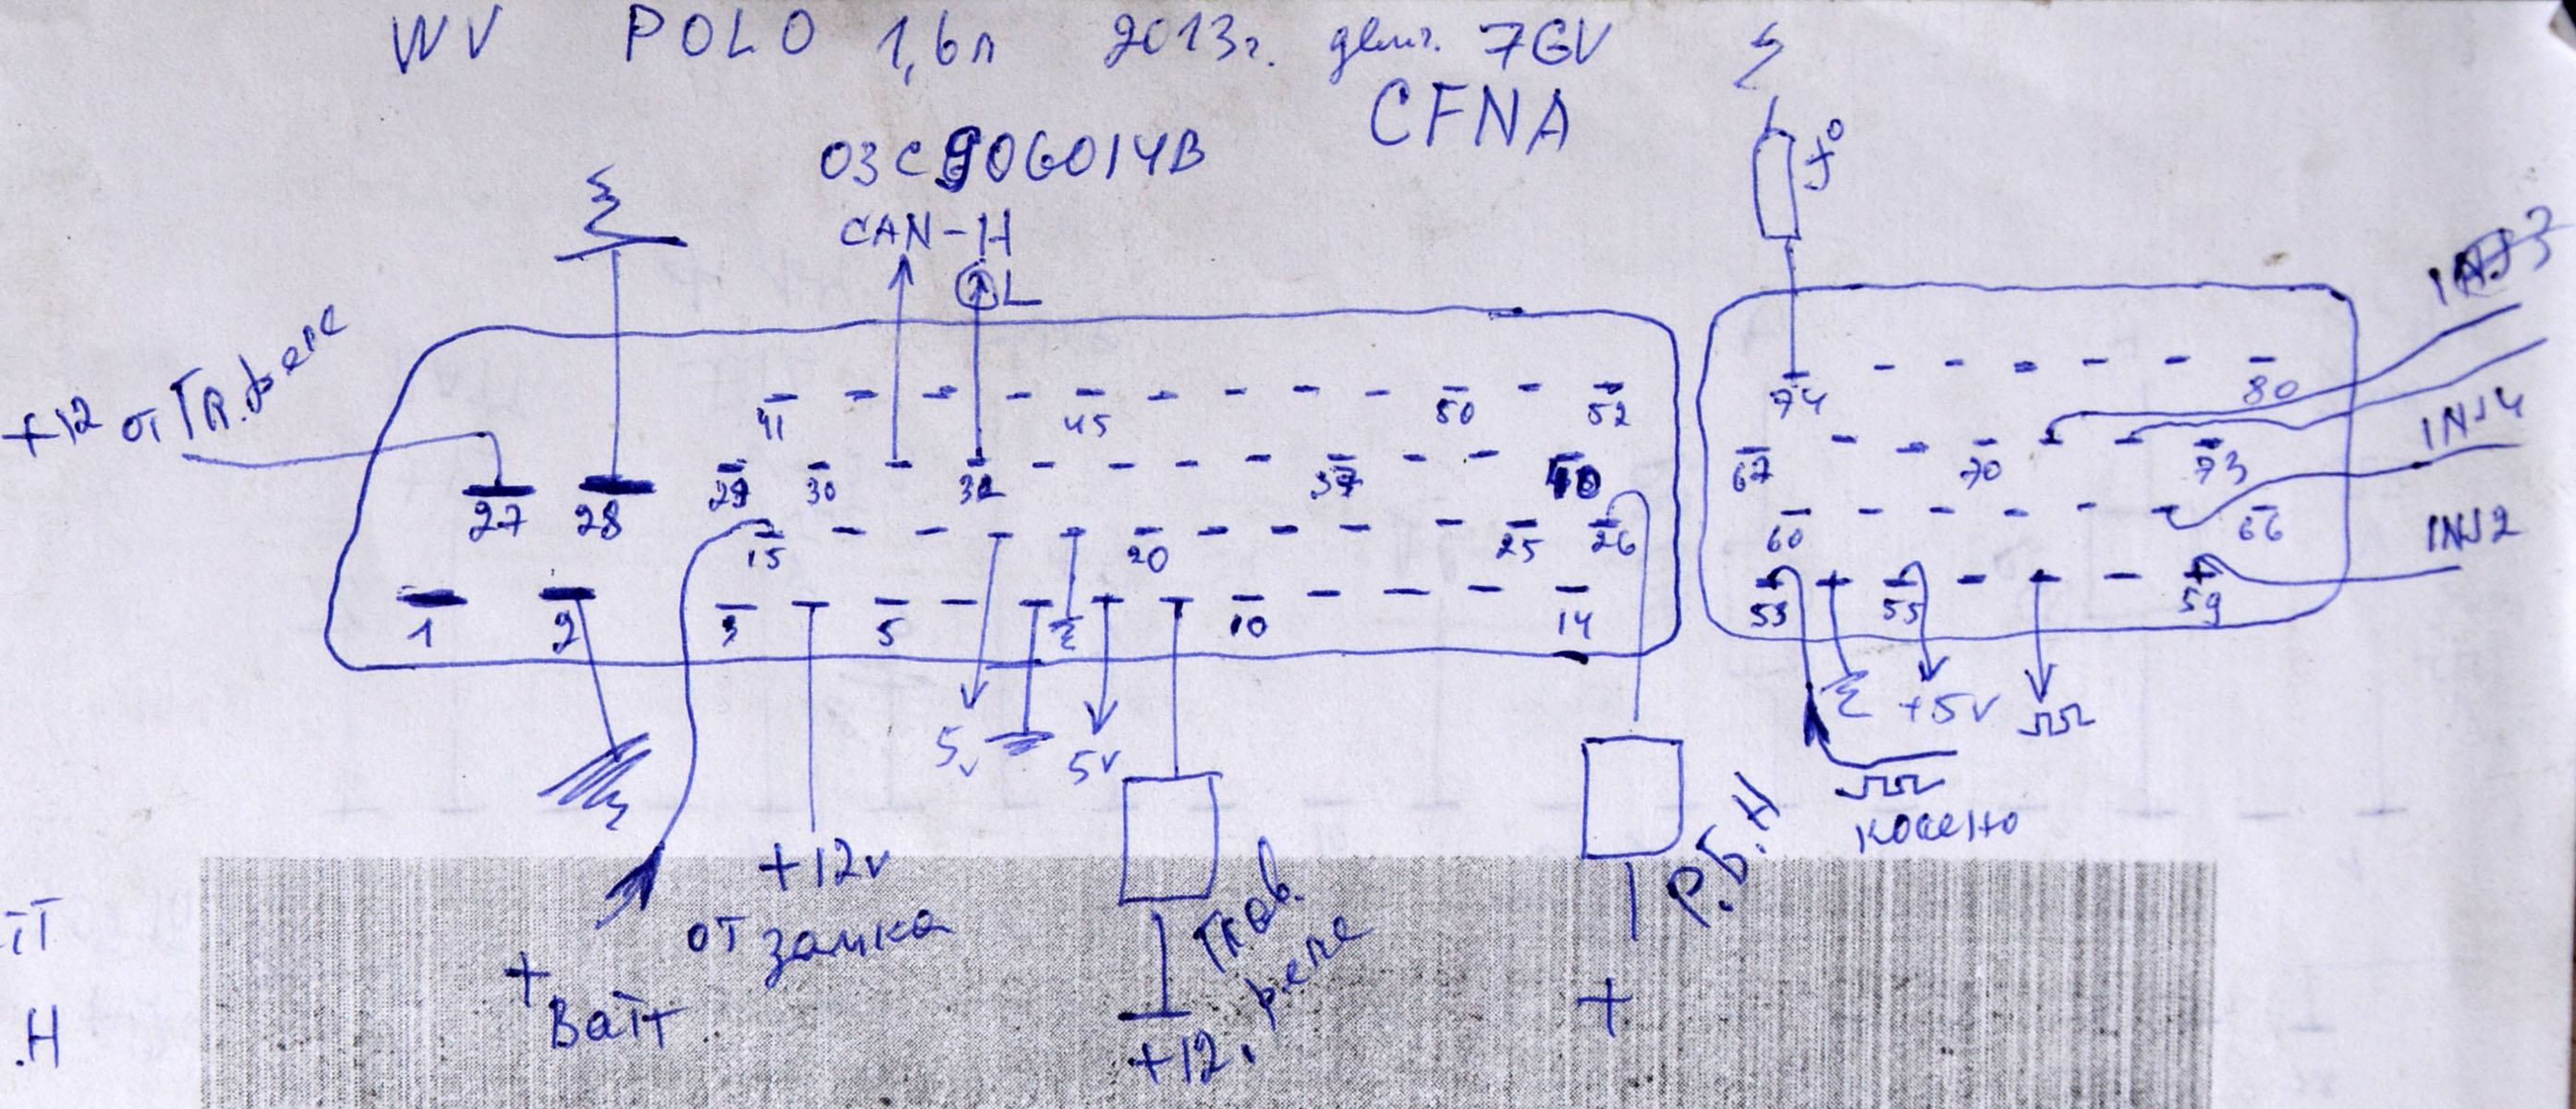 WV POLO 1,6л 2013г. двиг. 7GV
CFNA
03C906014B
t°
CAN-H
L
+12 от гл. реле
INJ3
INJ4
INJ2
41 45 50 52
74 80
27 28 29 30 32 37 40
67 70 73
15 20 25 26
60 66
1 2 3 5 10 14
53 55 59
5v 5v
+5v
косено
Р.Б.Н
+12v
от замка
+
Ватт
Глав. реле
+12.
+
.Н